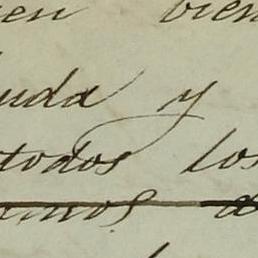 en bien
uda y
todos los
amos d